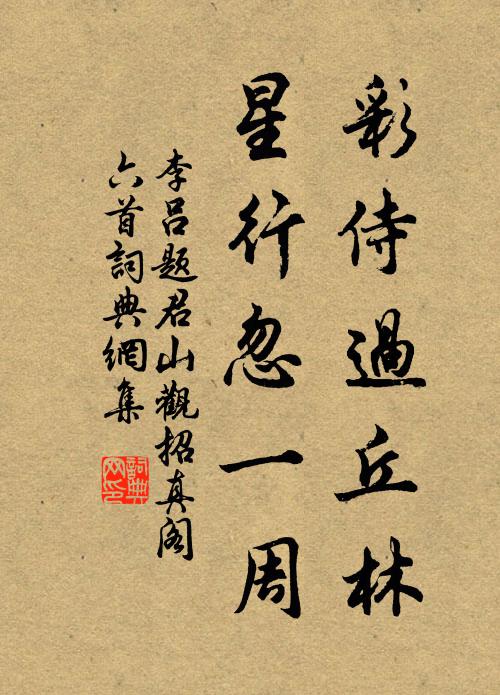 彩侍過丘林
星行忽一周
李呂題君山觀招真阁
六首詞典網集
詞典网印